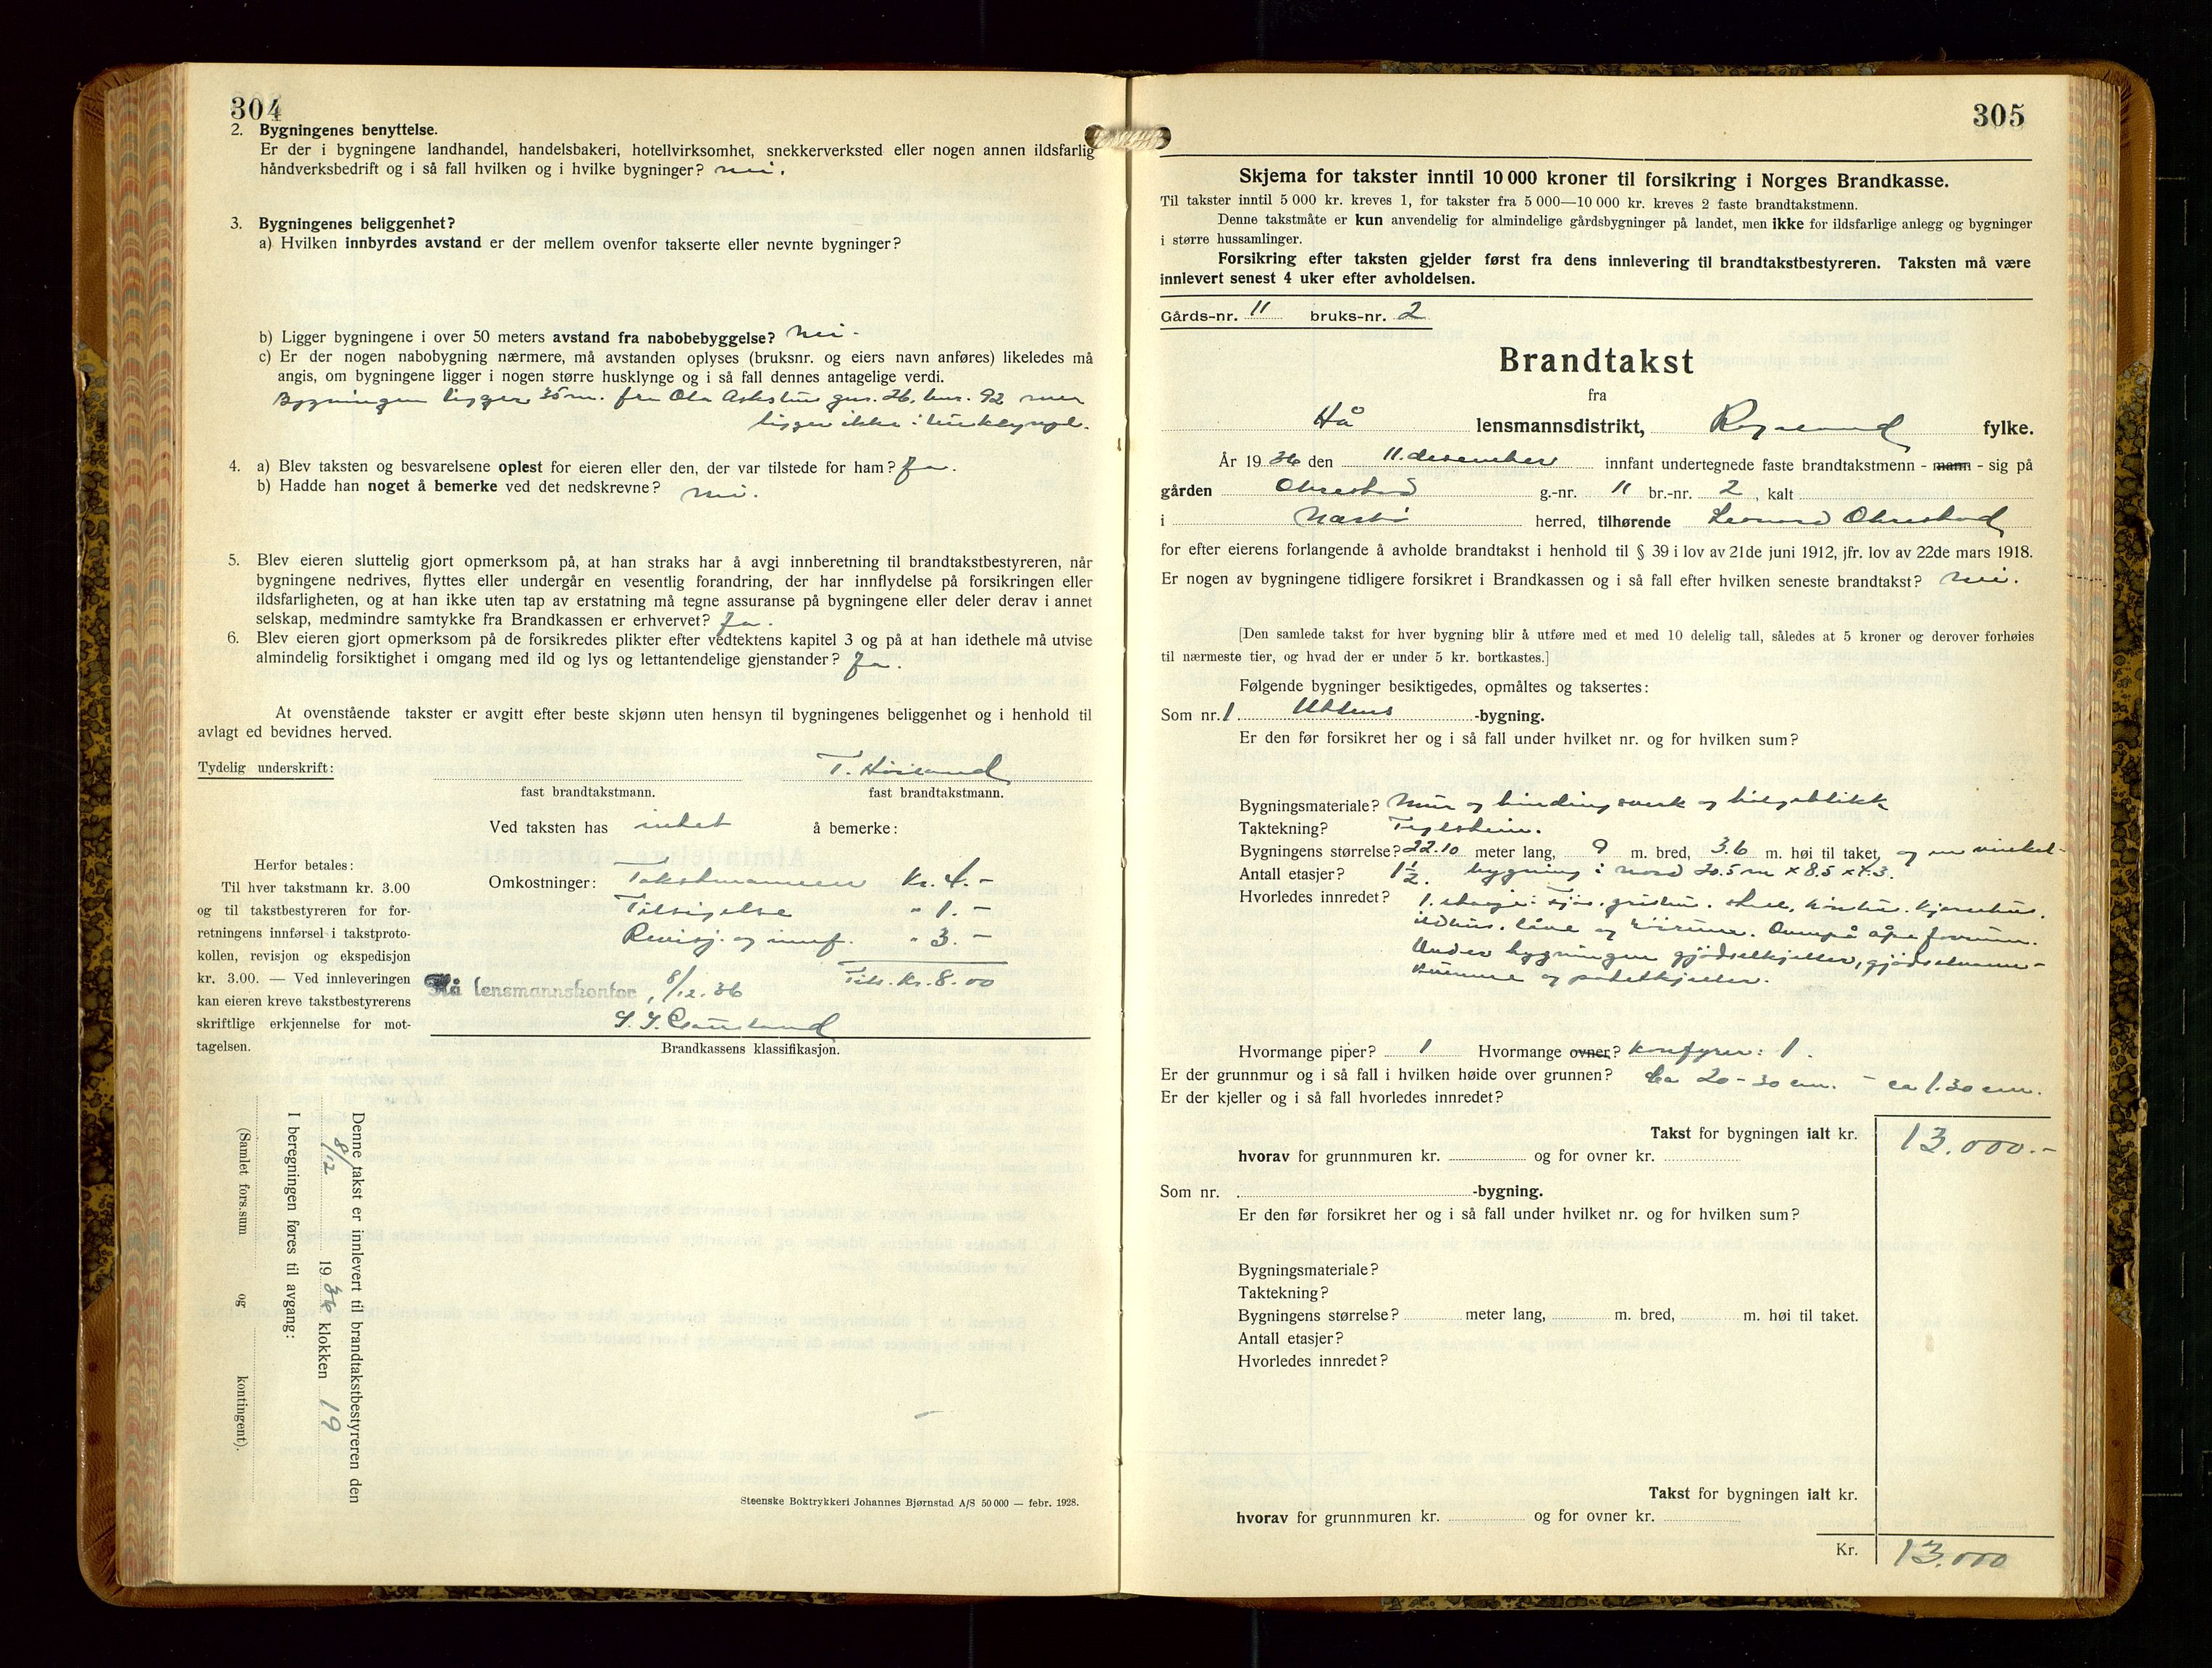 304
2. Bygningenes benyttelse.
Er der i bygningene landhandel, handelsbakeri, hotellvirksomhet, snekkerverksted eller nogen annen ildsfarlig
håndverksbedrift og i så fall hvilken og i hvilke bygninger? nei.
3. Bygningenes beliggenhet?
a) Hvilken innbyrdes avstand er der mellem ovenfor takserte eller nevnte bygninger?
b) Ligger bygningene i over 50 meters avstand fra nabobebyggelse? nei.
c) Er der nogen nabobygning nærmere, må avstanden oplyses (bruksnr. og eiers navn anføres) likeledes må
angis, om bygningene ligger i nogen større husklynge og i så fall dennes antagelige verdi.
Bygningen ligger 35 m. fra Ola gnr. 26, bnr. 92 men
ligger ikke i husklynge.
4. a) Blev taksten og besvarelsene oplest for eieren eller den, der var tilstede for ham? Ja.
b) Hadde han noget å bemerke ved det nedskrevne? nei.
5. Blev eieren sluttelig gjort opmerksom på, at han straks har å avgi innberetning til brandtakstbestyreren, når
bygningene nedrives, flyttes eller undergår en vesentlig forandring, der har innflydelse på forsikringen eller
ildsfarligheten, og at han ikke uten tap av erstatning må tegne assuranse på bygningene eller deler derav i annet
selskap, medmindre samtykke fra Brandkassen er erhvervet? Ja.
6. Blev eieren gjort opmerksom på de forsikredes plikter efter vedtektens kapitel 3 og på at han idethele må utvise
almindelig forsiktighet i omgang med ild og lys og lettantendelige gjenstander? Ja.
At ovenstående takster er avgitt efter beste skjønn uten hensyn til bygningenes beliggenhet og i henhold til
avlagt ed bevidnes herved.
Tydelig underskrift: T. Høiland
fast brandtakstmann. fast brandtakstmann.
Ved taksten has intet å bemerke:
Herfor betales:
Til hver takstmann kr. 3.00
og til takstbestyreren for for-
retningens innførsel i takstproto-
kollen, revisjon og ekspedisjon
kr. 3.00. — Ved innleveringen
kan eieren kreve takstbestyrerens
skriftlige erkjennelse for mot-
tagelsen.
Omkostninger: Takstmannen Kr. 4.-
Tilsigelse " 1.-
Revisj. og innf. " 3.-
Tils. Kr. 8.00
Hå lensmannskontor, 8/12.36
Brandkassens klassifikasjon.
Denne takst er innlevert til brandtakstbestyreren den
8/12 1936 klokken 19
I beregningen føres til avgang:
(Samlet fors.sum og kontingent).
Steenske Boktrykkeri Johannes Bjørnstad A/S 50 000 — febr. 1928.
305
Skjema for takster inntil 10 000 kroner til forsikring i Norges Brandkasse.
Til takster inntil 5 000 kr. kreves 1, for takster fra 5 000—10 000 kr. kreves 2 faste brandtakstmenn.
Denne takstmåte er kun anvendelig for almindelige gårdsbygninger på landet, men ikke for ildsfarlige anlegg og bygninger
i større hussamlinger.
Forsikring efter taksten gjelder først fra dens innlevering til brandtakstbestyreren. Taksten må være
innlevert senest 4 uker efter avholdelsen.
Gårds-nr. 11 bruks-nr. 2
Brandtakst
fra
Hå lensmannsdistrikt, Rogaland fylke.
År 1936 den 11. desember innfant undertegnede faste brandtakstmenn - mann - sig på
gården Obrestad g.-nr. 11 br.-nr. 2, kalt
i Nærbø herred, tilhørende Leonard Obrestad
for efter eierens forlangende å avholde brandtakst i henhold til § 39 i lov av 21de juni 1912, jfr. lov av 22de mars 1918.
Er nogen av bygningene tidligere forsikret i Brandkassen og i så fall efter hvilken seneste brandtakst? nei.
[Den samlede takst for hver bygning blir å utføre med et med 10 delelig tall, således at 5 kroner og derover forhøies
til nærmeste tier, og hvad der er under 5 kr. bortkastes.]
Følgende bygninger besiktigedes, opmåltes og taksertes:
Som nr. 1 Uthus -bygning.
Er den før forsikret her og i så fall under hvilket nr. og for hvilken sum?
Bygningsmateriale? Mur og bindingsverk og bølgeblikk
Taktekning? Teglstein.
Bygningens størrelse? 22.10 meter lang, 9 m. bred, 3.6 m. høi til taket, og en vinkel-
Antall etasjer? 1½. bygning i nord 20.5 m x 8.5 x 4.3.
Hvorledes innredet? 1. etasje: fjøs, grishus, stall, hønhus, kjørehus,
ildhus, låve og Ovenpå
Under bygningen gjødselkjeller, gjødselvann-
kumme og potetkjeller.
Hvormange piper? 1 Hvormange ovner? Komfyrer: 1.
Er der grunnmur og i så fall i hvilken høide over grunnen? ca 20-30 cm. - ca 1.30 cm.
Er der kjeller og i så fall hvorledes innredet?
Takst for bygningen ialt kr. 13.000.-
hvorav for grunnmuren kr. og for ovner kr.
Som nr. -bygning.
Er den før forsikret her og i så fall under hvilket nr. og for hvilken sum?
Bygningsmateriale?
Taktekning?
Bygningens størrelse? meter lang, m. bred, m. høi til taket.
Antall etasjer?
Hvorledes innredet?
Takst for bygningen ialt kr.
hvorav for grunnmuren kr. og for ovner kr.
Kr. 13.000